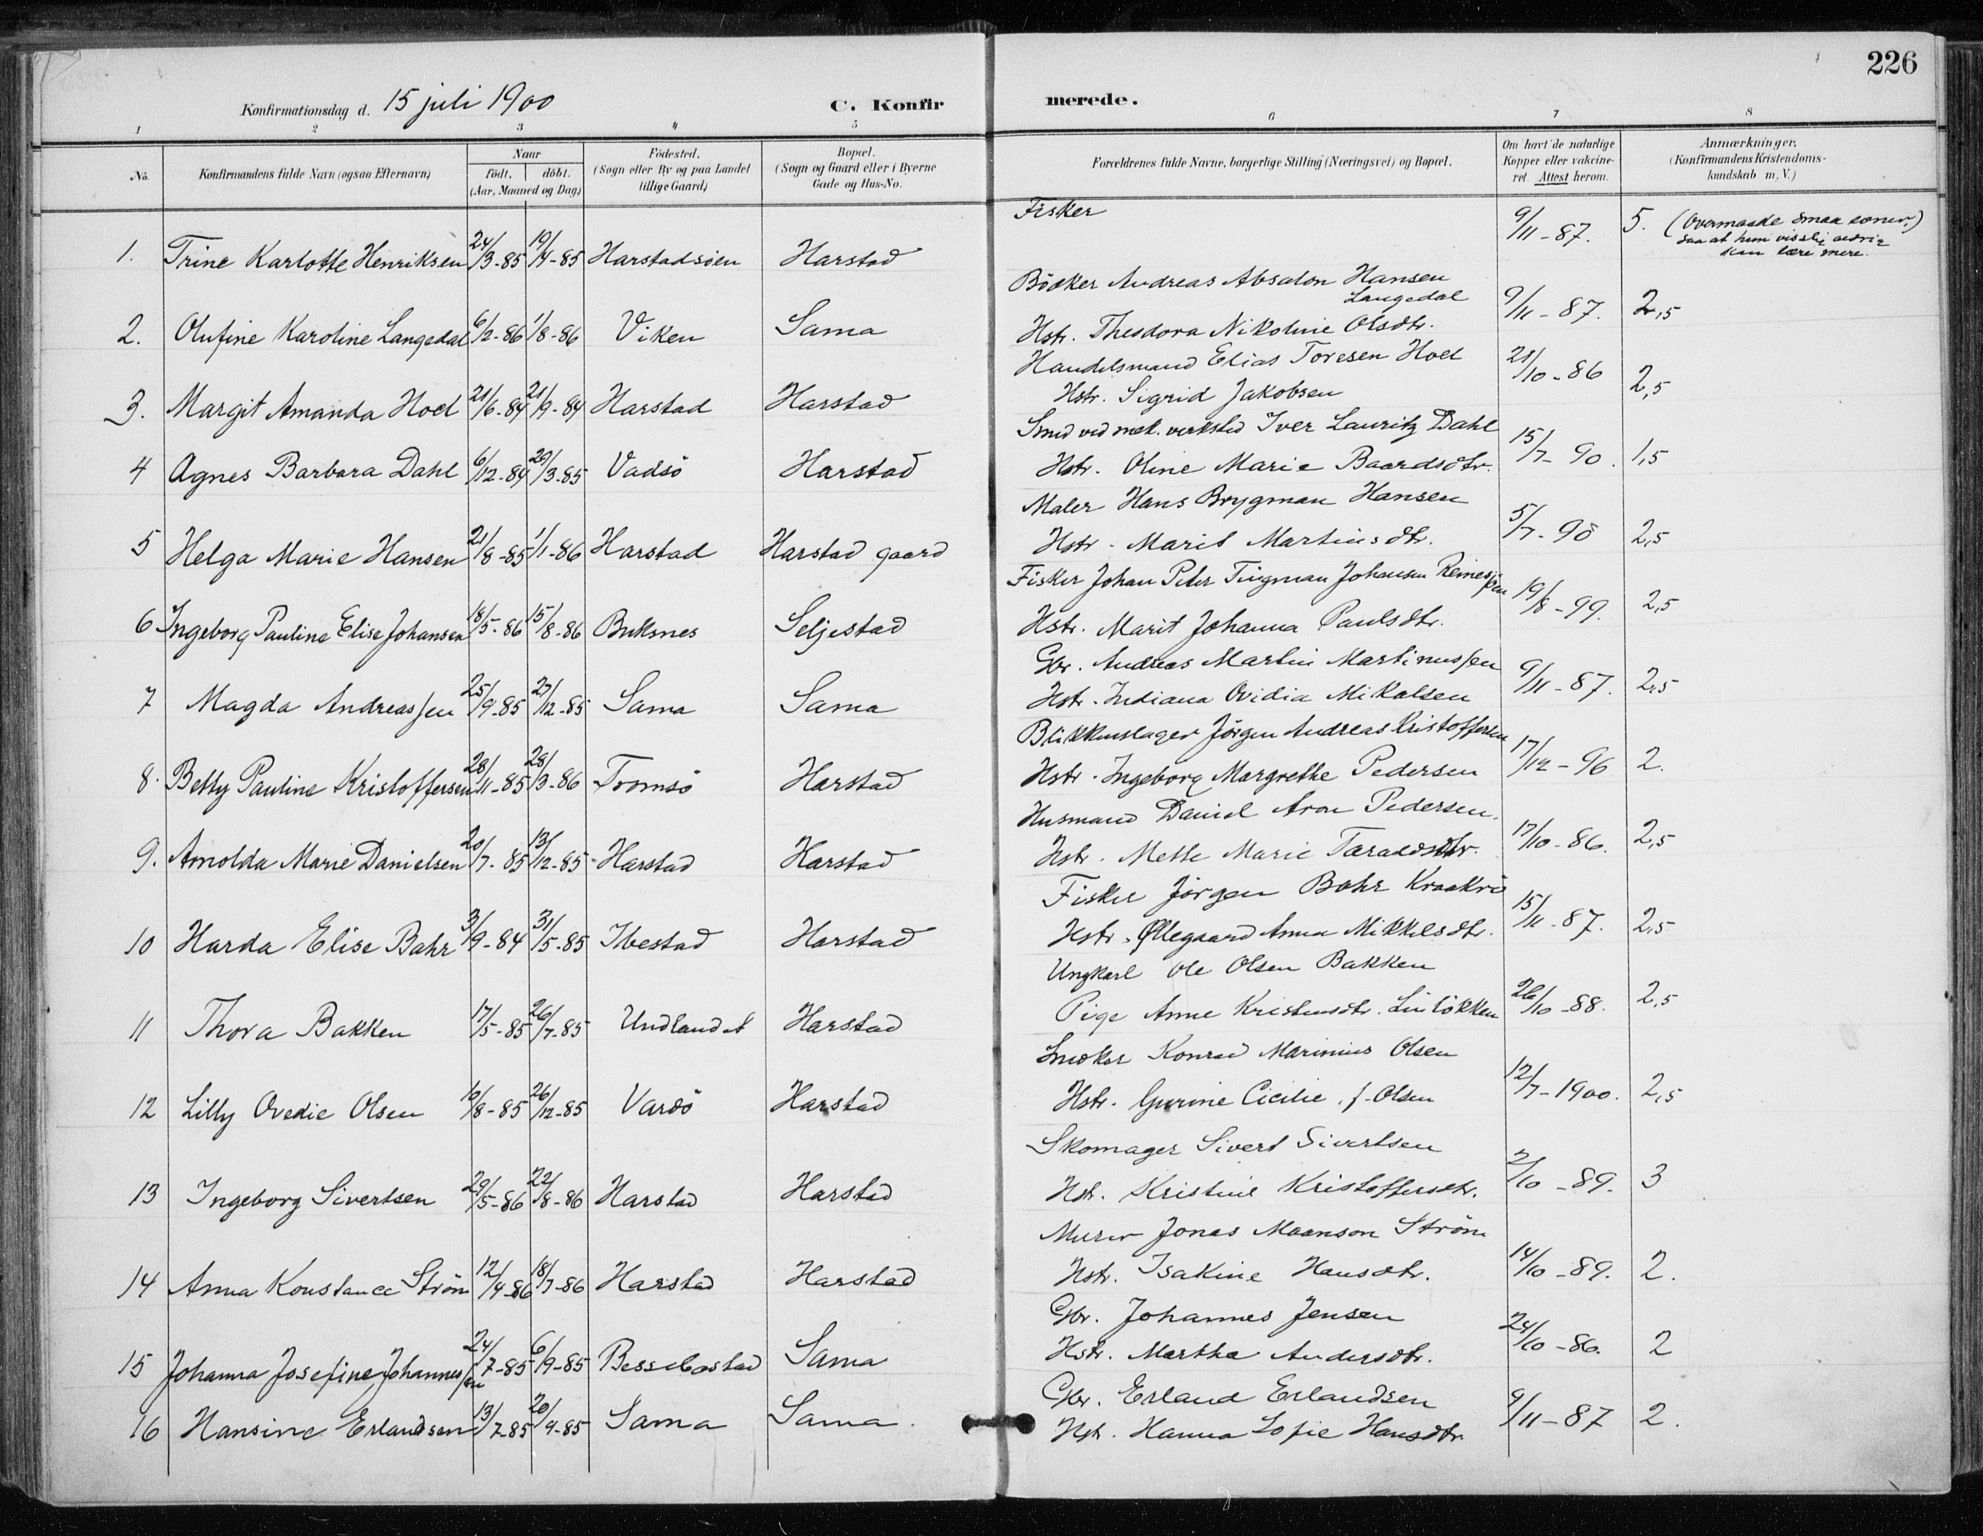 226
Konfirmationsdag d. 15 juli 1900
C. Konfirmerede.
1 2 3 4 5 6 7 8
No. Konfirmandens fulde Navn (ogsaa Efternavn) Naar født. døbt. (Aar, Maaned og Dag) Fødested. (Sogn eller By og paa Landet tillige Gaard) Bopæl. (Sogn og Gaard eller i Byerne Gade og Hus-No. Forældrenes fulde Navne, borgerlige Stilling (Næringsvei) og Bopæl. Om havt de naturlige Kopper eller vakcineret Attest herom. Anmærkninger. (Konfirmandens Kristendomskundskab m. V.)
1. Trine Karlotte Henriksen 24/3-85 19/4-85 Harstadsöen Harstad Fisker 9/11-87. 5. (Overmaade smaa evner) saa at hun visslig aldrig kan lære mere.
2. Olufine Karoline Langedal 6/2-86 1/8-86 Viken Sama Bödker Andreas Absalon Hansen Langedal
Hstr. Theodora Nikoline Olsdtr. 9/11-87. 2,5
3. Margit Amanda Hoel 21/6-84 21/9-84 Harstad Harstad Handelsmand Elias Toresen Hoel
Hstr. Sigrid Jakobsen 21/10-86 2,5
4 Agnes Barbara Dahl 6/12-84 29/3-85 Vadsö Harstad Smed ved mek. verksted Iver Lauritz Dahl
Hstr. Oline Marie Baardsdtr. 15/7-90. 1,5
5 Helga Marie Hansen 21/8-85 1/1-86 Harstad Harstad gaard Maler Hans Brygman Hansen
Hstr. Marit Martinsdtr. 5/7-98 2,5
6 Ingeborg Pauline Elise Johansen 18/5-86 15/8-86 Buksnes Seljestad Fisker Johan Peter Tingman Johansen
Hstr. Marit Johanna Paulsdtr. 19/8-99. 2,5
7 Magda Andreassen 25/9-85 27/12-85 Sama Sama Gbr. Andreas Martin Martinussen
Hstr. Indiana Ovidia Mikalsen 9/11-87. 2,5
8. Betty Pauline Kristoffersen 28/11-85 28/3-86 Tromsö Harstad Blikkenslager Jörgen Andreas Kristoffersen
Hstr. Ingeborg Margrethe Pedersen 17/12-96 2.
9. Arnolda Marie Danielsen 20/7-85 13/12-85 Harstad Harstad Husmand Daniel Aron Pedersen.
Hstr. Mette Marie Taraldsdtr. 17/10-86. 2,5
10 Harda Elise Bahr 3/9-84 31/5-85 Ibestad Harstad Fisker Jörgen Bahr Kraakrö
Hstr. Øllegaard Anna Mikkelsdtr. 15/11-87. 2,5
11 Thora Bakken 17/5-85 26/7-85 Undlandet Harstad Ungkarl Ole Olsen Bakken
Pige Anne Kristensdtr. Linlökken 26/10-88. 2,5
12 Lilly Ovedie Olsen 10/8-85 26/12-85 Vardö Harstad Snedker Konrad Marinius Olsen
Hstr. Gurine Cicilie f. Olsen 12/7-1900. 2,5
13 Ingeborg Sivertsen 29/5-86 22/8-86 Harstad Harstad Skomager Sivert Sivertsen
Hstr. Kristine Kristoffersdtr. 2/10-89. 3
14 Anna Konstance Ström 12/4-86 18/7-86 Harstad Harstad Murer Jonas Maanson Ström
Hstr. Isakine Hansdtr. 14/10-89. 2.
15 Johanna Josefine Johannessen 24/7-85 6/9-85 Bessebostad Sama Gbr. Johannes Jensen
Hstr. Martha Andersdtr. 24/10-86. 2
16 Hansine Erlandsen 13/7-85 20/9-85 Sama Sama. Gbr. Erland Erlandsen
Hstr. Hanna Sofie Hansdtr. 9/11-87 2.